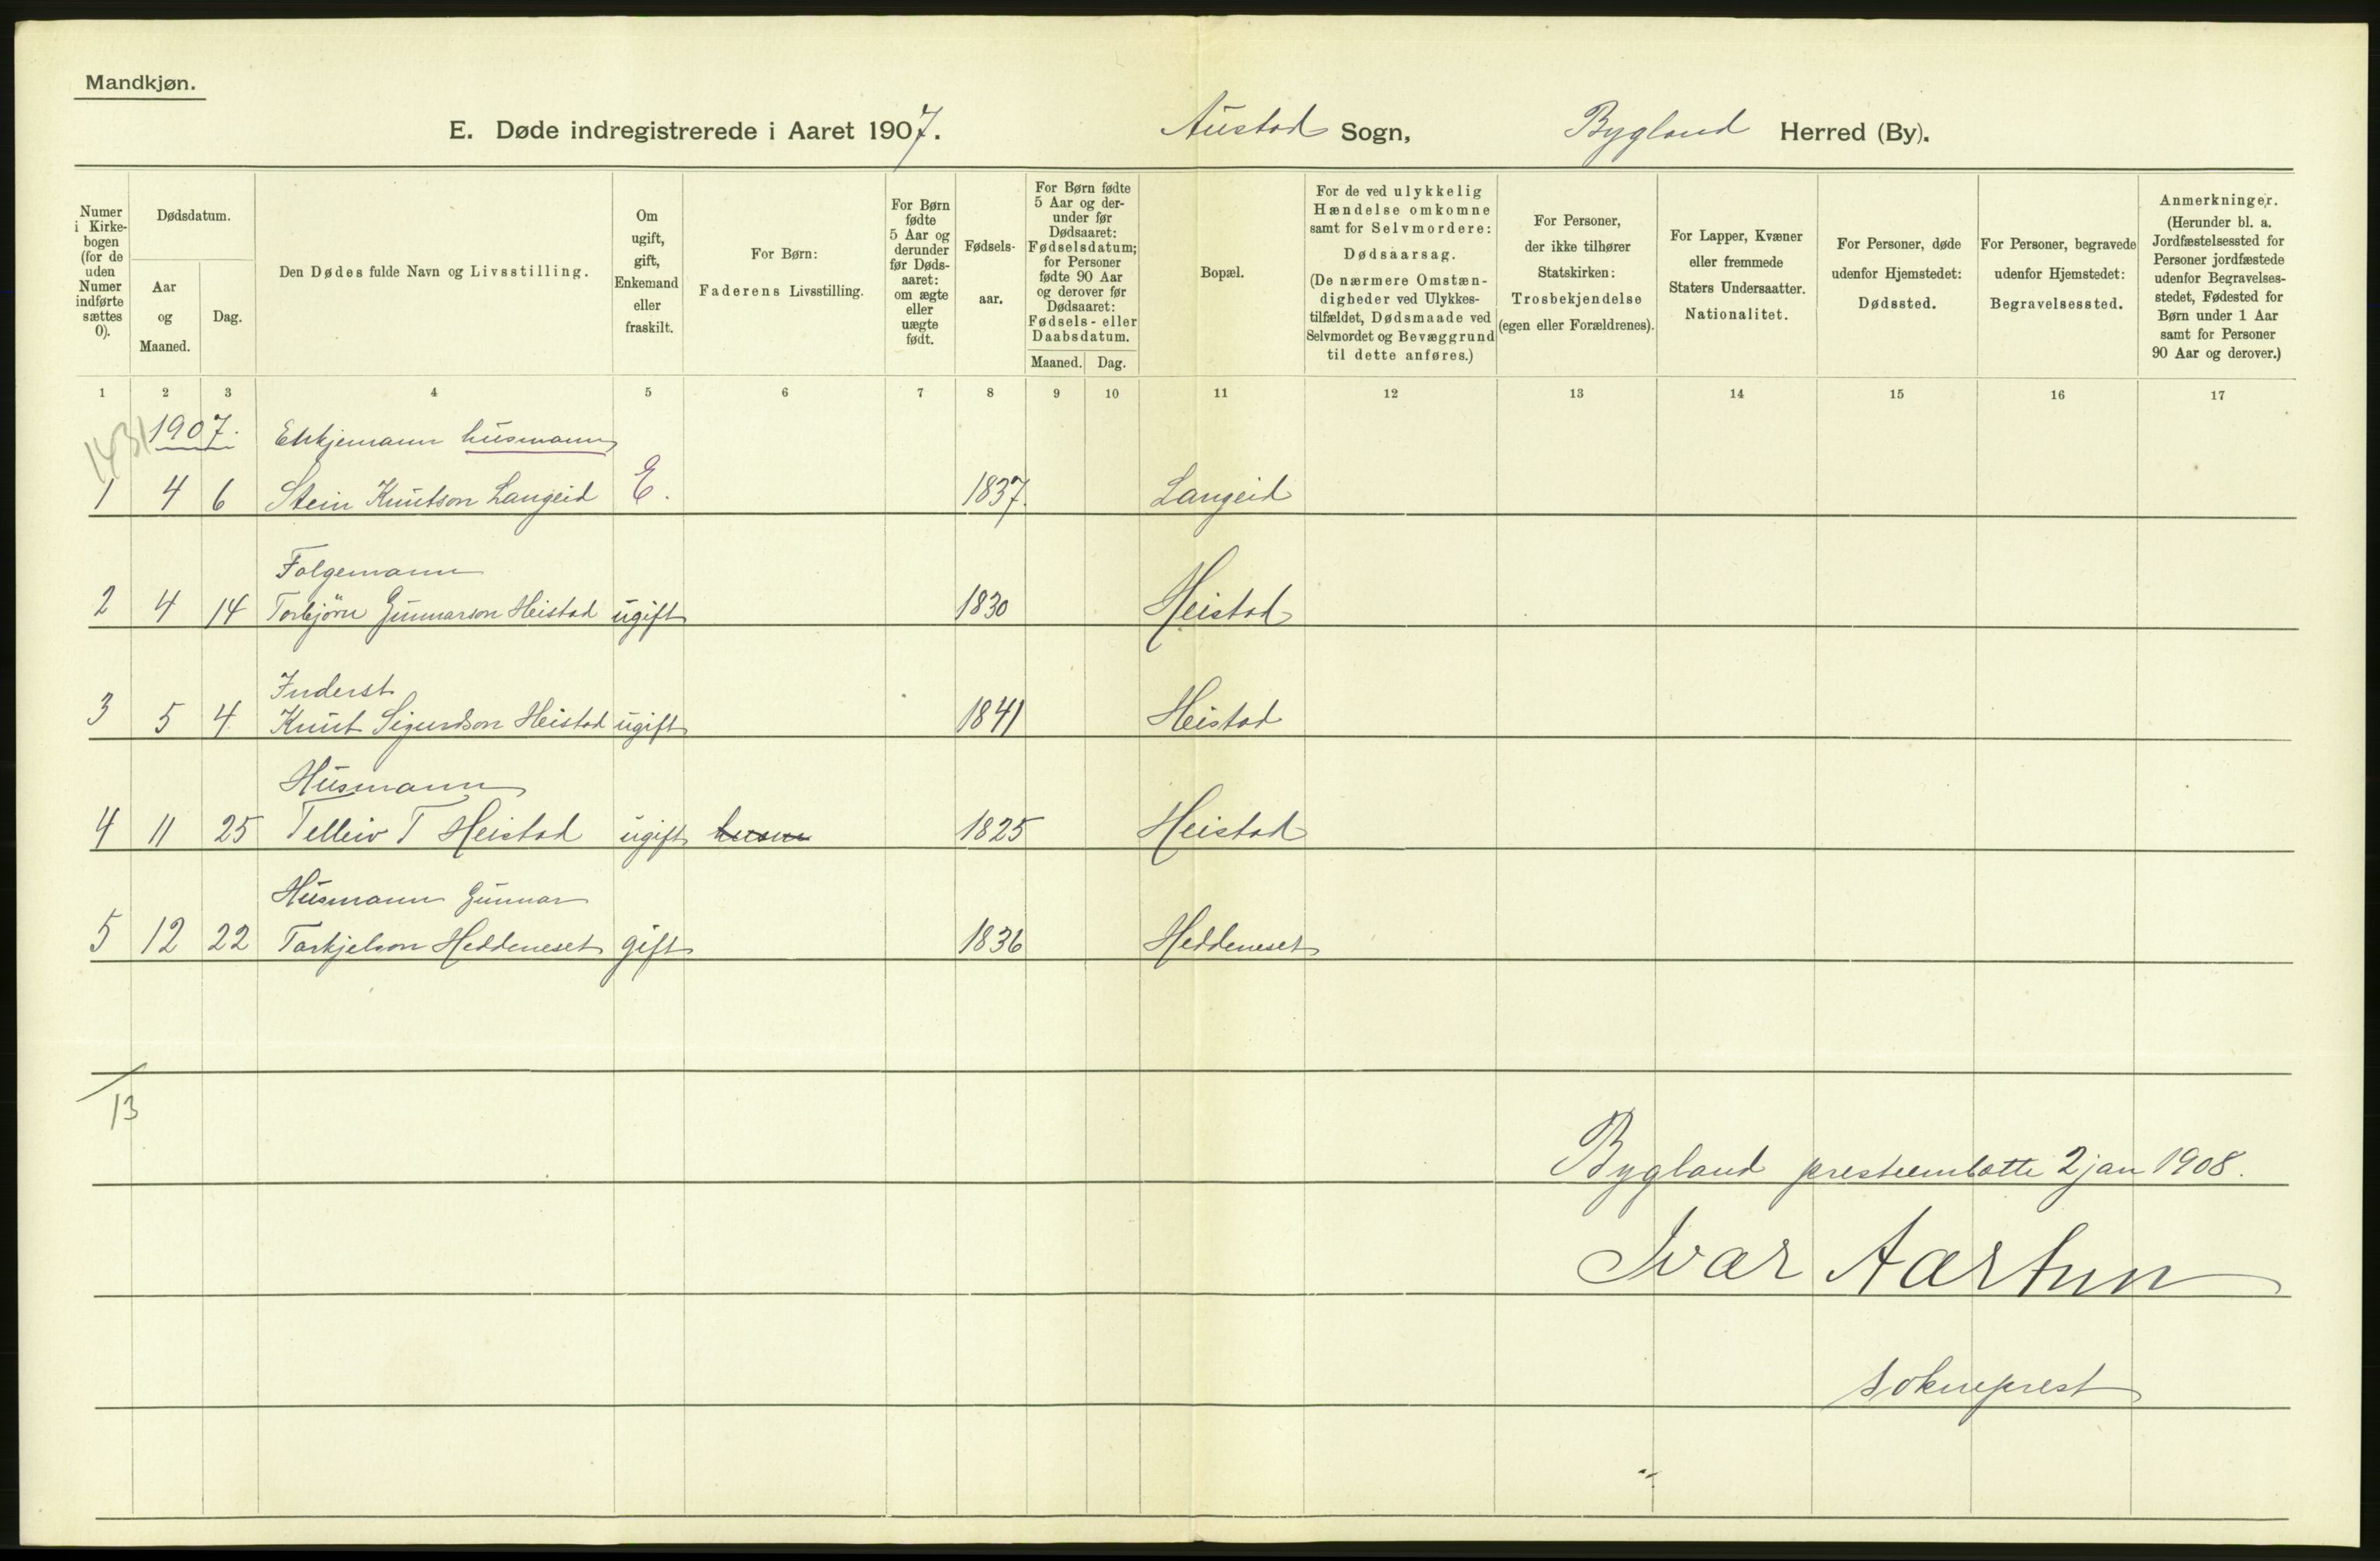 Mandkjøn.
E. Døde indregistrerede i Aaret 1907. Austad Sogn, Bygland Herred (By).
Numer i Kirke-bogen (for de uden Numer indførte sættes 0).
Dødsdatum.
Aar og Maaned.
Dag.
Den Dødes fulde Navn og Livsstilling.
Om ugift, gift, Enkemand eller fraskilt.
For Børn: Faderens Livsstilling.
For Børn fødte 5 Aar og derunder før Døds-aaret: om ægte eller uægte født.
Fødsels-aar.
For Børn fødte 5 Aar og der-under før Dødsaaret: Fødselsdatum; for Personer fødte 90 Aar og derover før Dødsaaret: Fødsels- eller Daabsdatum.
Maaned. Dag.
Bopæl.
For de ved ulykkelig Hændelse omkomne samt for Selvmordere: Dødsaarsag. (De nærmere Omstæn-digheder ved Ulykkes-tilfældet, Dødsmaade ved Selvmordet og Bevæggrund til dette anføres.)
For Personer, der ikke tilhører Statskirken: Trosbekjendelse (egen eller Forældrenes).
For Lapper, Kvæner eller fremmede Staters Undersaatter. Nationalitet.
For Personer, døde udenfor Hjemstedet: Dødssted.
For Personer, begravede udenfor Hjemstedet: Begravelsessted.
Anmerkninger. (Herunder bl. a. Jordfæstelsessted for Personer jordfæstede udenfor Begravelses-stedet, Fødested for Børn under 1 Aar samt for Personer 90 Aar og derover.)
1 2 3 4 5 6 7 8 9 10 11 12 13 14 15 16 17
1431 1907. Enkjemann husmann
1 4 6 Stein Knutson Langeid E. 1837. Langeid
Folgemann
2 4 14 Torbjørn Gunnarson Heistad ugift 1830 Heistad
Inderst
3 5 4 Knut Sigurdson Heistad ugift 1841 Heistad
Husmann
4 11 25 Telleiv T Heistad ugift husm 1825 Heistad
Husmann Gunnar
5 12 22 Tarkjelson Heddeneset gift 1836 Heddeneset
13
Bygland presteembætte 2 jan 1908.
Ivar Aartun
sokneprest